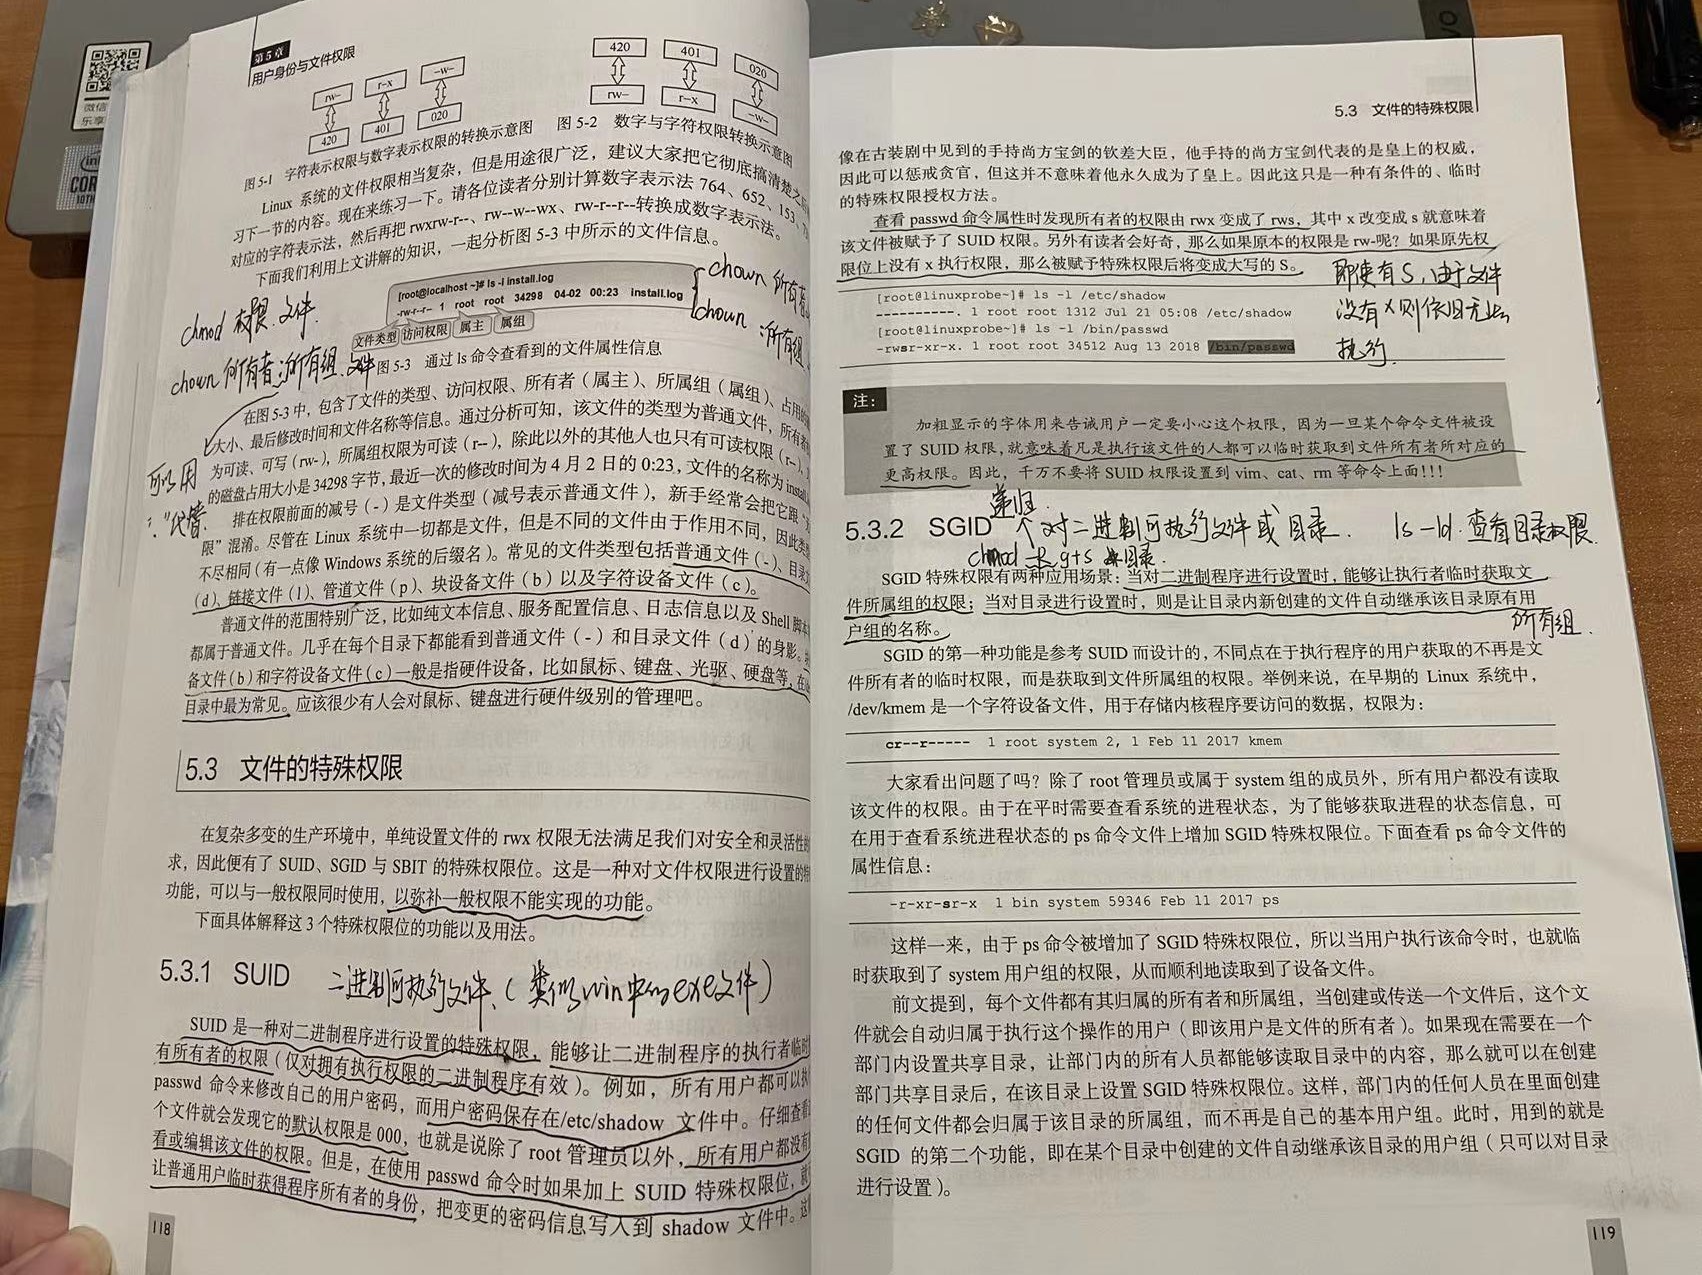 第5章
用户身份与文件权限
rw- r-x -w-
420 401 020
420 401 020
rw- r-x -w-
图5-1 字符表示权限与数字表示权限的转换示意图 图5-2 数字与字符权限转换示意图
Linux 系统的文件权限相当复杂，但是用途很广泛，建议大家把它彻底搞清楚之
习下一节的内容。现在来练习一下。请各位读者分别计算数字表示法 764、652、153、
对应的字符表示法，然后再把 rwxrw-r--、rw--w--wx、rw-r--r--转换成数字表示法。
下面我们利用上文讲解的知识，一起分析图 5-3 中所示的文件信息。
[root@localhost ~]# ls -l install.log
-rw-r--r-- 1 root root 34298 04-02 00:23 install.log
文件类型 访问权限 属主 属组
chown 所有者
chown :所有组
chmod 权限 文件
chown 所有者:所有组 文件
图 5-3 通过 ls 命令查看到的文件属性信息
在图 5-3 中，包含了文件的类型、访问权限、所有者（属主）、所属组（属组）、占用的
大小、最后修改时间和文件名称等信息。通过分析可知，该文件的类型为普通文件，所有者
为可读、可写（rw-），所属组权限为可读（r--），除此以外的其他人也只有可读权限（r--），
的磁盘占用大小是 34298 字节，最近一次的修改时间为 4 月 2 日的 0:23，文件的名称为 install.
可以用
"."代替.
排在权限前面的减号（-）是文件类型（减号表示普通文件），新手经常会把它跟“
限”混淆。尽管在 Linux 系统中一切都是文件，但是不同的文件由于作用不同，因此类型
不尽相同（有一点像 Windows 系统的后缀名）。常见的文件类型包括普通文件（-）、目录文
（d）、链接文件（l）、管道文件（p）、块设备文件（b）以及字符设备文件（c）。
普通文件的范围特别广泛，比如纯文本信息、服务配置信息、日志信息以及 Shell 脚本
都属于普通文件。几乎在每个目录下都能看到普通文件（-）和目录文件（d）的身影。
备文件（b）和字符设备文件（c）一般是指硬件设备，比如鼠标、键盘、光驱、硬盘等，在
目录中最为常见。应该很少有人会对鼠标、键盘进行硬件级别的管理吧。
5.3 文件的特殊权限
在复杂多变的生产环境中，单纯设置文件的 rwx 权限无法满足我们对安全和灵活性的
求，因此便有了 SUID、SGID 与 SBIT 的特殊权限位。这是一种对文件权限进行设置的特
功能，可以与一般权限同时使用，以弥补一般权限不能实现的功能。
下面具体解释这 3 个特殊权限位的功能以及用法。
5.3.1 SUID
二进制可执行文件、（类似win中的exe文件）
SUID 是一种对二进制程序进行设置的特殊权限，能够让二进制程序的执行者临时
有所有者的权限（仅对拥有执行权限的二进制程序有效）。例如，所有用户都可以执
passwd 命令来修改自己的用户密码，而用户密码保存在/etc/shadow 文件中。仔细查看
个文件就会发现它的默认权限是 000，也就是说除了 root 管理员以外，所有用户都没有
看或编辑该文件的权限。但是，在使用 passwd 命令时如果加上 SUID 特殊权限位，就
让普通用户临时获得程序所有者的身份，把变更的密码信息写入到 shadow 文件中。这
118
5.3 文件的特殊权限
像在古装剧中见到的手持尚方宝剑的钦差大臣，他手持的尚方宝剑代表的是皇上的权威，
因此可以惩戒贪官，但这并不意味着他永久成为了皇上。因此这只是一种有条件的、临时
的特殊权限授权方法。
查看 passwd 命令属性时发现所有者的权限由 rwx 变成了 rws，其中 x 改变成 s 就意味着
该文件被赋予了 SUID 权限。另外有读者会好奇，那么如果原本的权限是 rw-呢？如果原先权
限位上没有 x 执行权限，那么被赋予特殊权限后将变成大写的 S。
即使有S，由于文件
没有x则依旧无法
执行.
[root@linuxprobe~]# ls -l /etc/shadow
----------. 1 root root 1312 Jul 21 05:08 /etc/shadow
[root@linuxprobe~]# ls -l /bin/passwd
-rwsr-xr-x. 1 root root 34512 Aug 13 2018 /bin/passwd
注：
加粗显示的字体用来告诫用户一定要小心这个权限，因为一旦某个命令文件被设
置了 SUID 权限，就意味着凡是执行该文件的人都可以临时获取到文件所有者所对应的
更高权限。因此，千万不要将 SUID 权限设置到 vim、cat、rm 等命令上面！！！
递归
5.3.2 SGID
对二进制可执行文件或目录. ls -ld 查看目录权限.
chmod -R g+s 目录.
SGID 特殊权限有两种应用场景：当对二进制程序进行设置时，能够让执行者临时获取文
件所属组的权限；当对目录进行设置时，则是让目录内新创建的文件自动继承该目录原有用
户组的名称。
所有组.
SGID 的第一种功能是参考 SUID 而设计的，不同点在于执行程序的用户获取的不再是文
件所有者的临时权限，而是获取到文件所属组的权限。举例来说，在早期的 Linux 系统中，
/dev/kmem 是一个字符设备文件，用于存储内核程序要访问的数据，权限为：
cr--r----- 1 root system 2, 1 Feb 11 2017 kmem
大家看出问题了吗？除了 root 管理员或属于 system 组的成员外，所有用户都没有读取
该文件的权限。由于在平时需要查看系统的进程状态，为了能够获取进程的状态信息，可
在用于查看系统进程状态的 ps 命令文件上增加 SGID 特殊权限位。下面查看 ps 命令文件的
属性信息：
-r-xr-sr-x 1 bin system 59346 Feb 11 2017 ps
这样一来，由于 ps 命令被增加了 SGID 特殊权限位，所以当用户执行该命令时，也就临
时获取到了 system 用户组的权限，从而顺利地读取到了设备文件。
前文提到，每个文件都有其归属的所有者和所属组，当创建或传送一个文件后，这个文
件就会自动归属于执行这个操作的用户（即该用户是文件的所有者）。如果现在需要在一个
部门内设置共享目录，让部门内的所有人员都能够读取目录中的内容，那么就可以在创建
部门共享目录后，在该目录上设置 SGID 特殊权限位。这样，部门内的任何人员在里面创建
的任何文件都会归属于该目录的所属组，而不再是自己的基本用户组。此时，用到的就是
SGID 的第二个功能，即在某个目录中创建的文件自动继承该目录的用户组（只可以对目录
进行设置）。
119